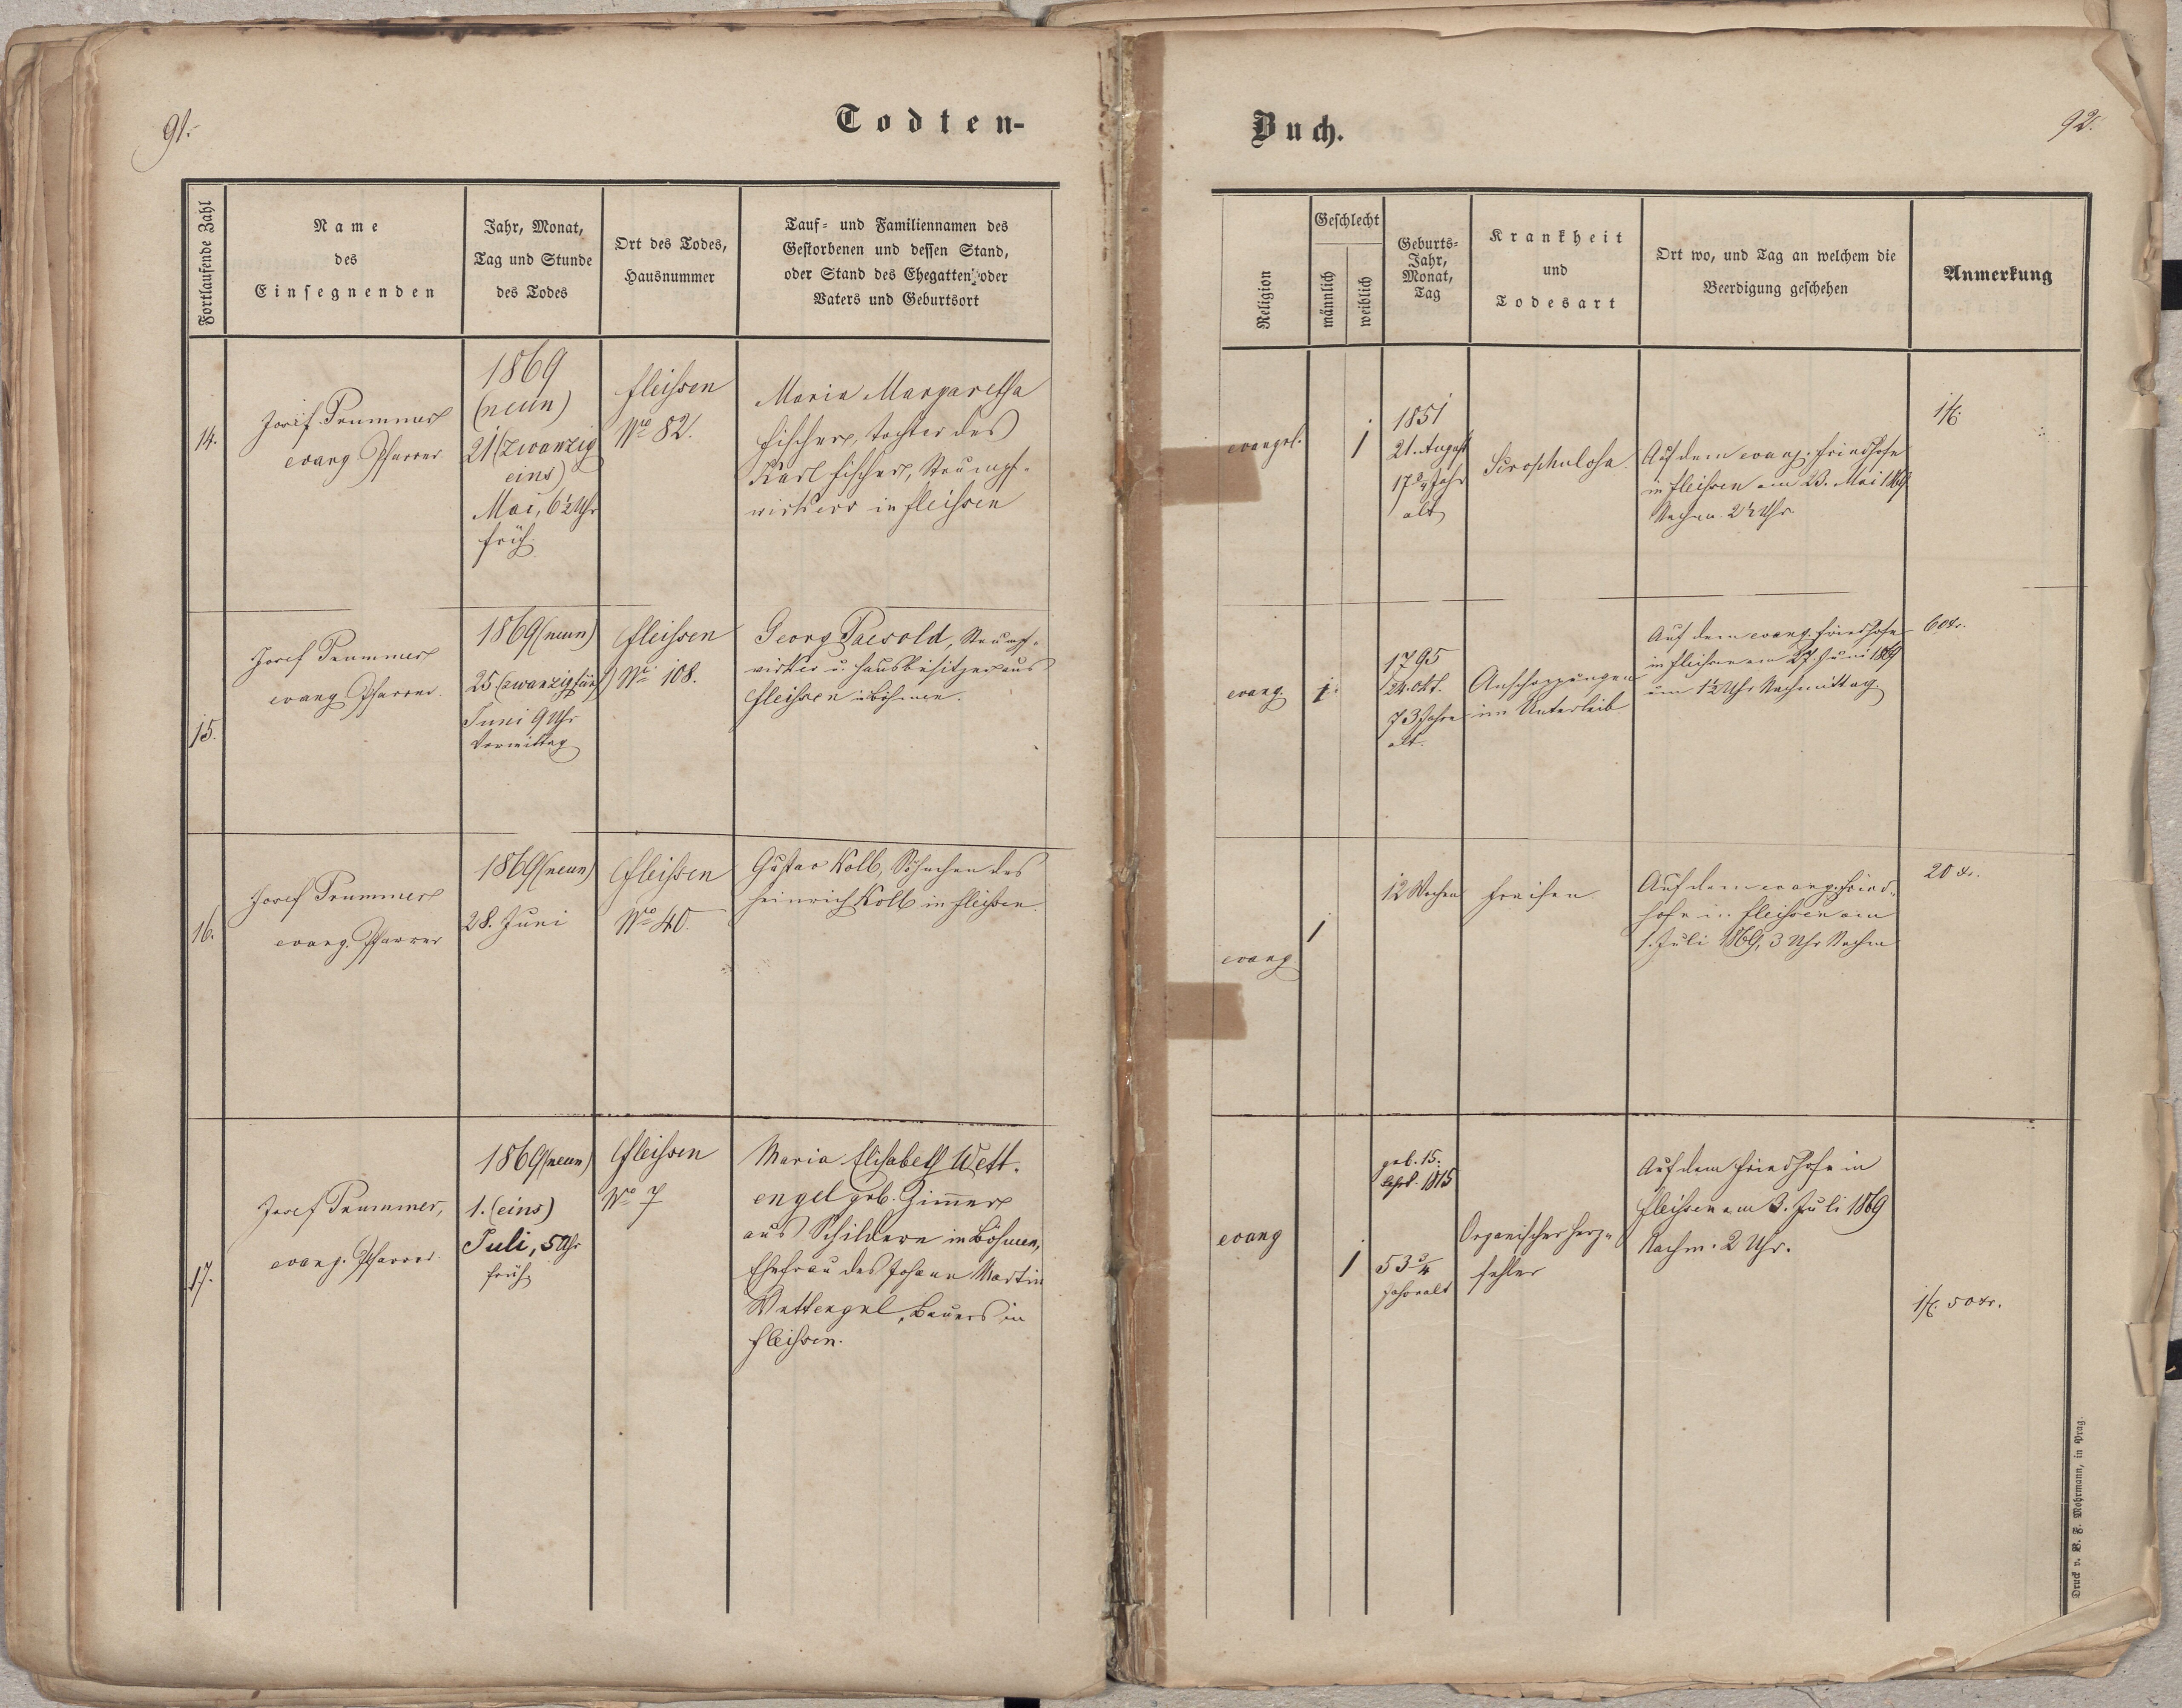 91.
Todten-
Fortlaufende Zahl
Name
des
Einsegnenden
Jahr, Monat,
Tag und Stunde
des Todes
Ort des Todes,
Hausnummer
Tauf- und Familiennamen des
Gestorbenen und dessen Stand,
oder Stand des Ehegatten oder
Vaters und Geburtsort
14.
Josef Trummer
evang. Pfarrer
1869
(neun)
21 (zwanzig
eins)
Mai, 6½ Uhr
früh
Fleissen
No 82.
Maria Margaretha
Fischer, Tochter des
Karl Fischer, Strumpf-
wirkers in Fleissen
15.
Josef Trummer
evang. Pfarrer.
1869 (neun)
25 (zwanzig fünf)
Juni 9 Uhr
Vormittag
Fleissen
No 108.
Georg Paesold, Strumpf-
wirker u. Hausbesitzer aus
Fleissen in Böhmen.
16.
Josef Trummer
evang. Pfarrer
1869 (neun)
28. Juni
Fleissen
No 40.
Gustav Kolb, Söhnchen des
Heinrich Kolb in Fleissen.
17.
Josef Trummer,
evang. Pfarrer.
1869 (neun)
1. (eins)
Juli, 5 Uhr
früh
Fleissen
No 7
Maria Elisabeth Wett-
engel geb. Zimmer
aus Schildern in Böhmen,
Ehefrau des Johann Martin
Wettengel, Bauers in
Fleissen.
Buch.
92.
Religion
Geschlecht
männlich
weiblich
Geburts-
Jahr,
Monat,
Tag
Krankheit
und
Todesart
Ort wo, und Tag an welchem die
Beerdigung geschehen
Anmerkung
evangel.
1
1851
21. August
17¾ Jahr
alt
Scrophulosa.
Auf dem evang. Friedhofe
in Fleissen am 23. Mai 1869
Nachm. 2½ Uhr
1 fl.
evang.
1.
1795
24. Okt.
73 Jahre
alt.
Anschoppungen
im Unterleib.
Auf dem evang. Friedhofe
in Fleissen am 27. Juni 1869
um 1½ Uhr Nachmittag.
60 xr.
evang.
1
12 Wochen
Fraisen.
Auf dem evang. Fried-
hofe in Fleissen am
1. Juli 1869, 3 Uhr Nachm
20 xr.
evang
1
geb. 15.
Sept. 1815
53¾
Jahr alt
Organischer Herz-
fehler
Auf dem Friedhofe in
Fleissen am 3. Juli 1869
Nachm. 2 Uhr.
1 fl. 50 xr.
Druck v. B. F. Mohrmann, in Prag.